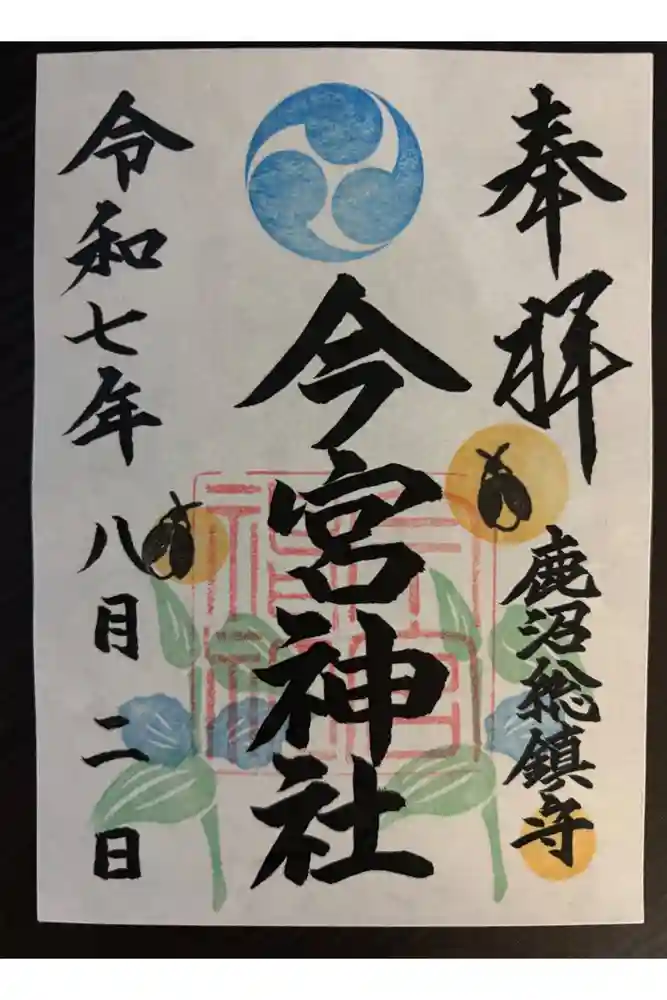 奉拝
鹿沼総鎮守
今宮神社
令和七年八月二日